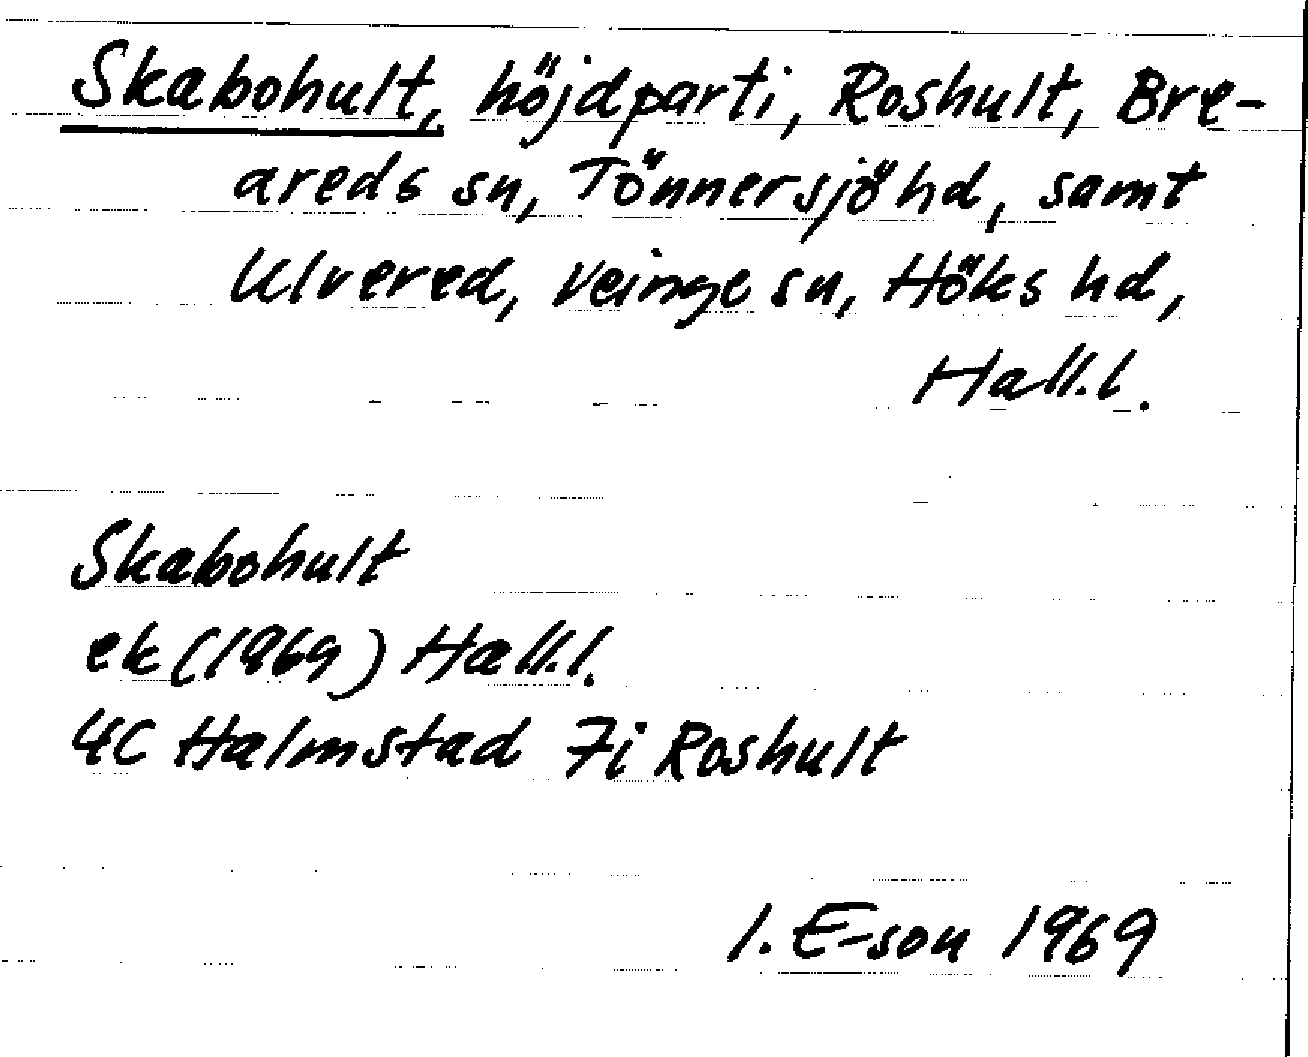 Skabohult, höjdparti, Roshult, Bre-
areds sn, Tönnersjö hd, samt
Ulvered, Veinge sn, Höks hd,
Hall.l.
Skabohult
ek (1969) Hall.l.
4C Halmstad 7i Roshult
I. E-son 1969